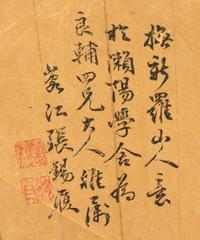 橅新羅山人意
於瀨陽學舍為
良輔四兄大人雅屬
張錫